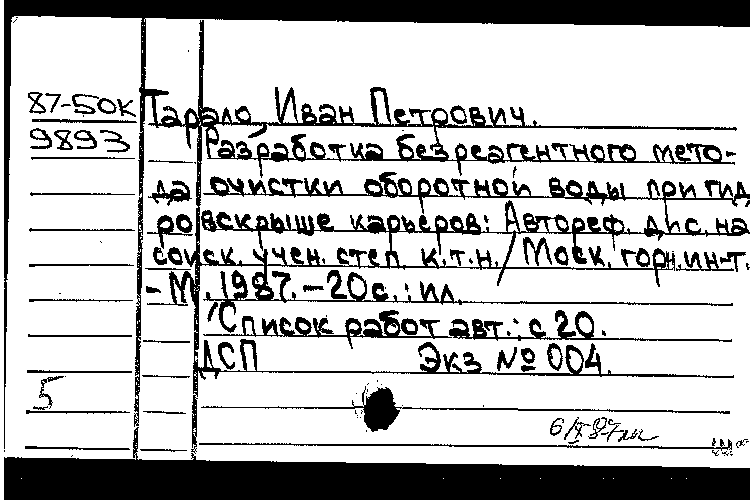 87-50к
9893
Тарало, Иван Петрович.
Разработка безреагентного мето-
да очистки оборотной воды при гид
ровскрыше карьеров: Автореф. дис. на
соиск. учен. степ. к.т.н. / Моск. горн. ин-т.
- М., 1987. - 20 с.: ил.
Список работ авт.: с 20.
ДСП Экз № 004.
5